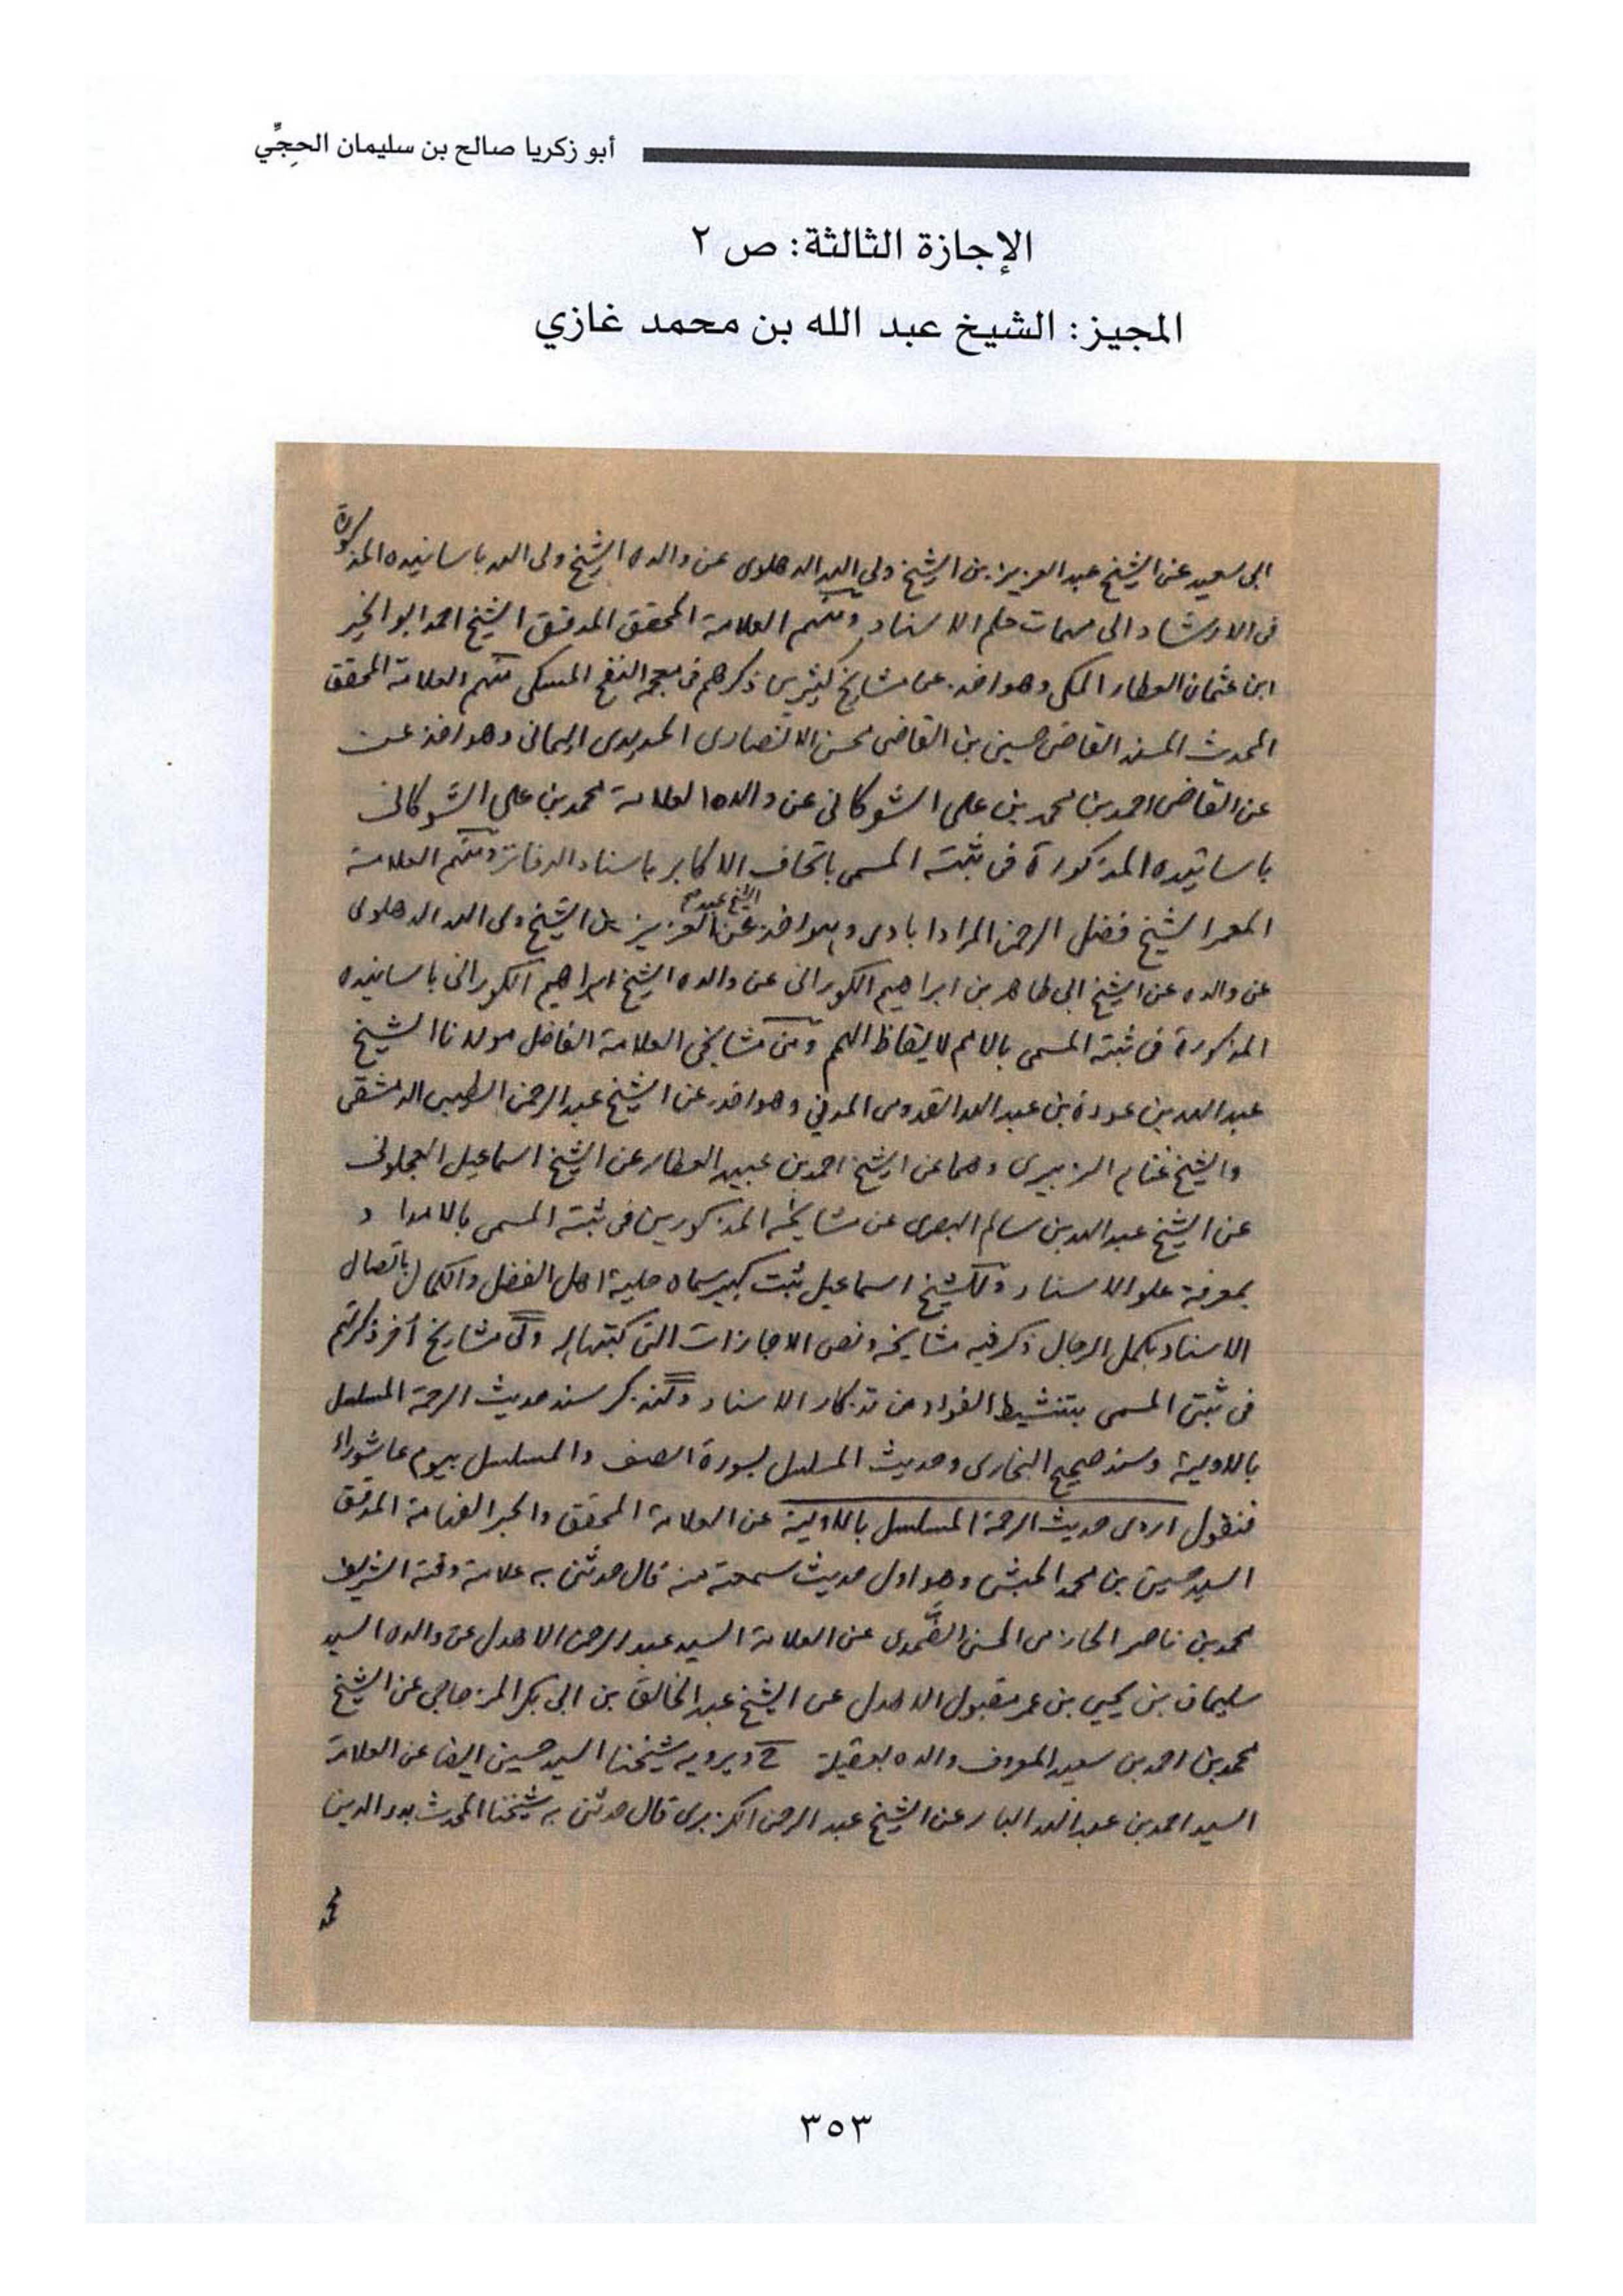 أبو زكريا صالح بن سليمان الحِجِّي
الإجازة الثالثة: ص ٢
المجيز: الشيخ عبد الله بن محمد غازي
ابى سعيد عن الشيخ عبد العزيز بن الشيخ ولي الله الدهلوى عن والده الشيخ ولى الله باسانيده المذكورة
فى الارشاد الى مهمات علم الاسناد ومنهم العلامة المحقق المدقق الشيخ احمد ابو الخير
ابن عثمان العطار المكى وهو اخذ عن مشايخ كثيرين ذكرهم فى معجمه النفح المسكى منهم العلامة المحقق
المحدث المسند القاضى حسين بن القاضى محسن الانصارى الحديدى اليمانى وهو اخذ عن
عن القاضى احمد بن محمد بن على الشوكانى عن والده العلامة محمد بن على الشوكانى
باسانيده المذكورة فى ثبته المسمى باتحاف الاكابر باسناد الدفاتر ومنهم العلامة
المعمر الشيخ فضل الرحمن المرادابادى وهو اخذ عن الشيخ عبد العزيز بن الشيخ ولى الله الدهلوى
عن والده عن الشيخ ابى طاهر بن ابراهيم الكورانى عن والده الشيخ ابراهيم الكورانى باسانيده
المذكورة فى ثبته المسمى بالامم لايقاظ الهمم ومن مشايخى العلامة الفاضل مولانا الشيخ
عبد الله بن عودة بن عبد الله القدومى المدني وهو اخذ عن الشيخ عبد الرحمن الطيبى الدمشقى
والشيخ غنام الزبيرى وهما عن الشيخ احمد بن عبيد العطار عن الشيخ اسماعيل العجلونى
عن الشيخ عبد الله بن سالم البصرى عن مشايخه المذكورين فى ثبته المسمى بالامداد
بمعرفة علو الاسناد وللشيخ اسماعيل ثبت كبير سماه حلية اهل الفضل والكمال باتصال
الاسناد بكمل الرجال ذكر فيه مشايخه ونص الاجازات التى كتبتها له ولى مشايخ أخر ذكرتهم
فى ثبتى المسمى بتنشيط الفواد من تذكار الاسناد ولنذكر سند حديث الرحمة المسلسل
بالاولية وسند صحيح البخارى وحديث المسلسل بسورة الصف والمسلسل بيوم عاشوراء
فنقول اروى حديث الرحمة المسلسل بالاولية عن العلامة المحقق والحبر الفهامة المدقق
السيد حسين بن محمد الحبشى وهو اول حديث سمعته منه قال حدثنى به علامة وقته الشريف
محمد بن ناصر الحازمى الحسنى الضَّمدى عن العلامة السيد عبد الرحمن الاهدل عن والده السيد
سليمان بن يحيى بن عمر مقبول الاهدل عن الشيخ عبد الخالق بن ابى بكر المزجاجي عن الشيخ
محمد بن احمد بن سعيد المعروف والده بعقيلة ح ويرويه شيخنا السيد حسين ايضا عن العلامة
السيد احمد بن عبد الله البار عن الشيخ عبد الرحمن الكزبرى قال حدثنى به شيخنا المحدث بدر الدين
محمد
٣٥٣